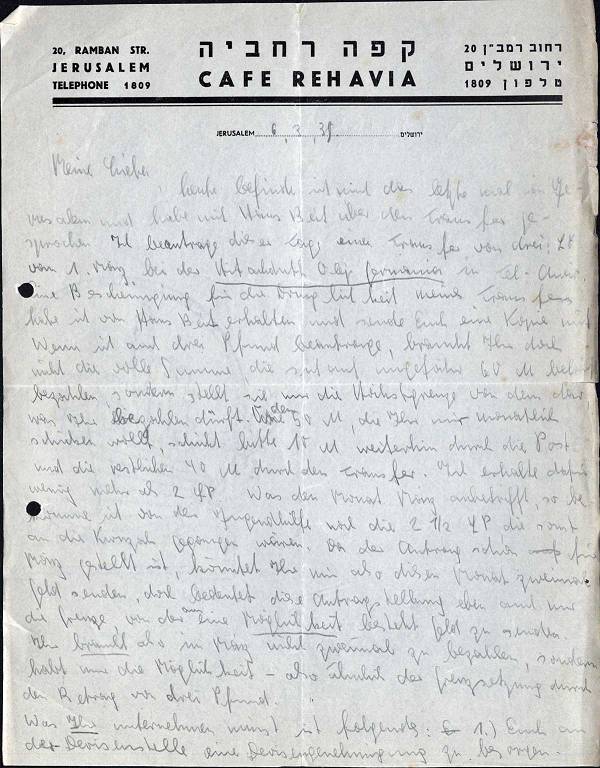 20, RAMBAN STR.
JERUSALEM
TELEPHONE 1809
קפה רחביה
CAFE REHAVIA
רחוב רמב״ן 20
ירושלים
טלפון 1809
JERUSALEM 6. 3. 39. ירושלים
Meine Lieben
heute befinde ich mich das letzte mal in Je-
rusalem und habe mit Hans Beit über den Transfer ge-
sprochen. Ich beantrage dieser Tage einen Transfer von drei LP
vom 1. März bei der Hitachduth Olej Germania in Tel-Awiw.
Eine Bescheinigung für die Dringlichkeit meines Transfers
habe ich von Hans Beit erhalten und sende Euch eine Kopie mit.
Wenn ich auch drei Pfund beantrage, braucht Ihr doch
nicht die volle Summe die sich auf ungefähr 60 M
bezahlen, sondern stellt sie nur die Höchstgrenze von dem dar
was Ihr bezahlen dürft. Von den 50 M, die Ihr mir monatlich
schicken wollt, schickt bitte 10 M weiterhin durch die Post
und die restlichen 40 M durch den Transfer. Ich erhalte dafür
wenig mehr als 2 LP. Was den Monat März anbetrifft, so be-
komme ich von der Jugendhilfe noch die 2 1/2 LP die sonst
an die gegangen wären. Da der Antrag schon für
März gestellt ist, könntet Ihr mir also diesen Monat zweimal
Geld senden, doch bedeutet diese Antragstellung eben auch nur
die Grenze von der aus eine Möglichkeit besteht Geld zu senden.
Ihr braucht also im März nicht zweimal zu bezahlen, sondern
habt nur die Möglichkeit – also ähnlich der Grenzsetzung durch
den Betrag von drei Pfund.
Was Ihr unternehmen müsst ist folgendes: 1.) Euch an
der Devisenstelle eine Devisengenehmigung zu besorgen.